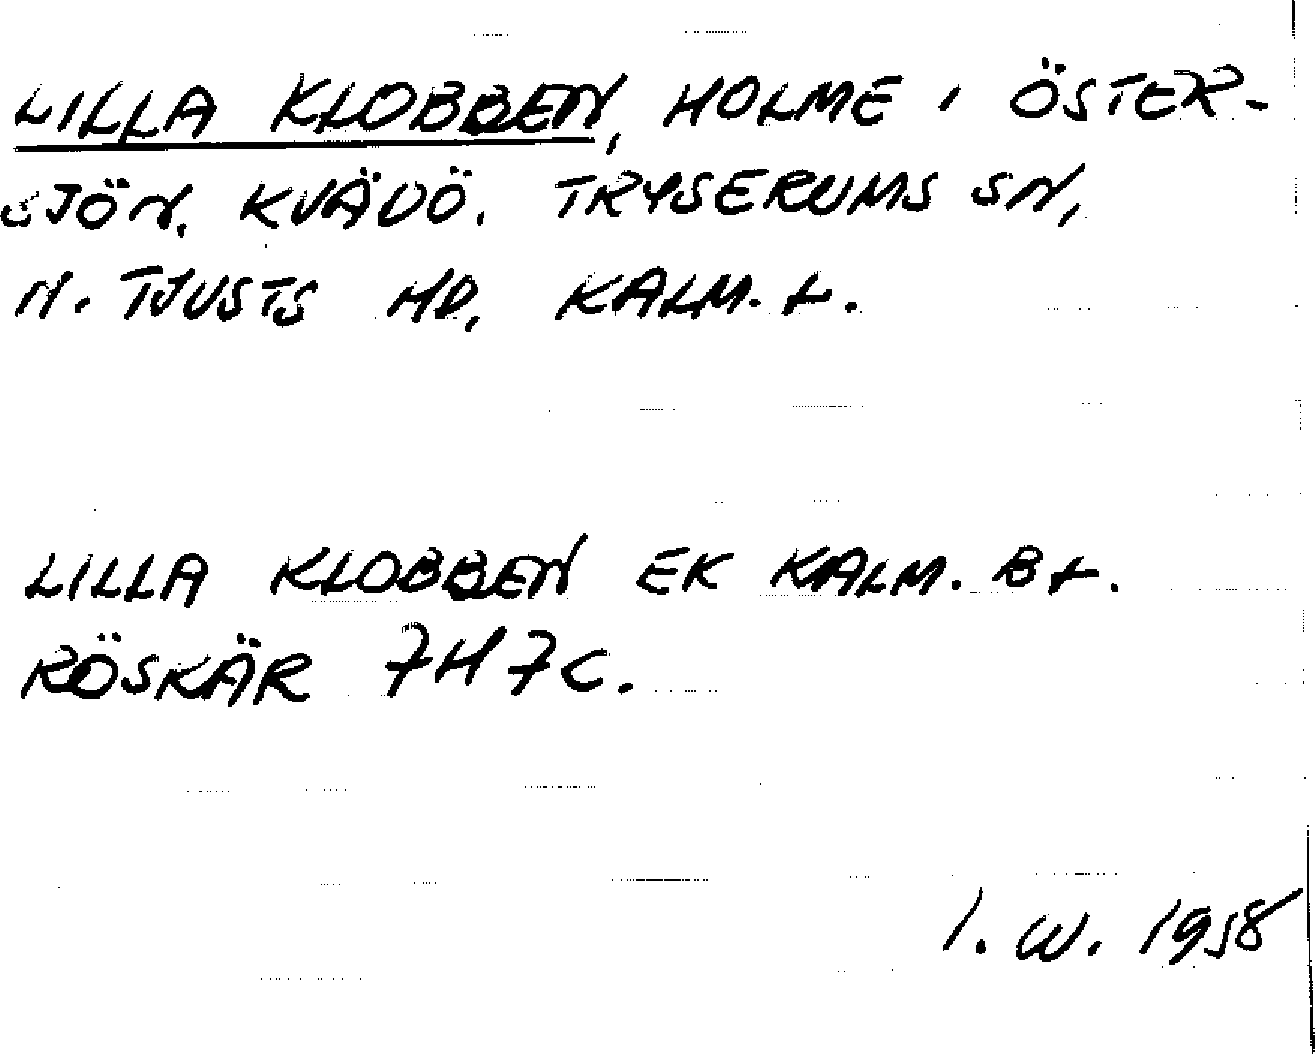 LILLA KLOBBEN, HOLME I ÖSTER-
SJÖN, KVÄDÖ, TRYSERUMS SN,
N. TJUSTS HD, KALM. L.
LILLA KLOBBEN EK KALM. BL.
RÖSKÄR 7H7C.
I. W. 1958